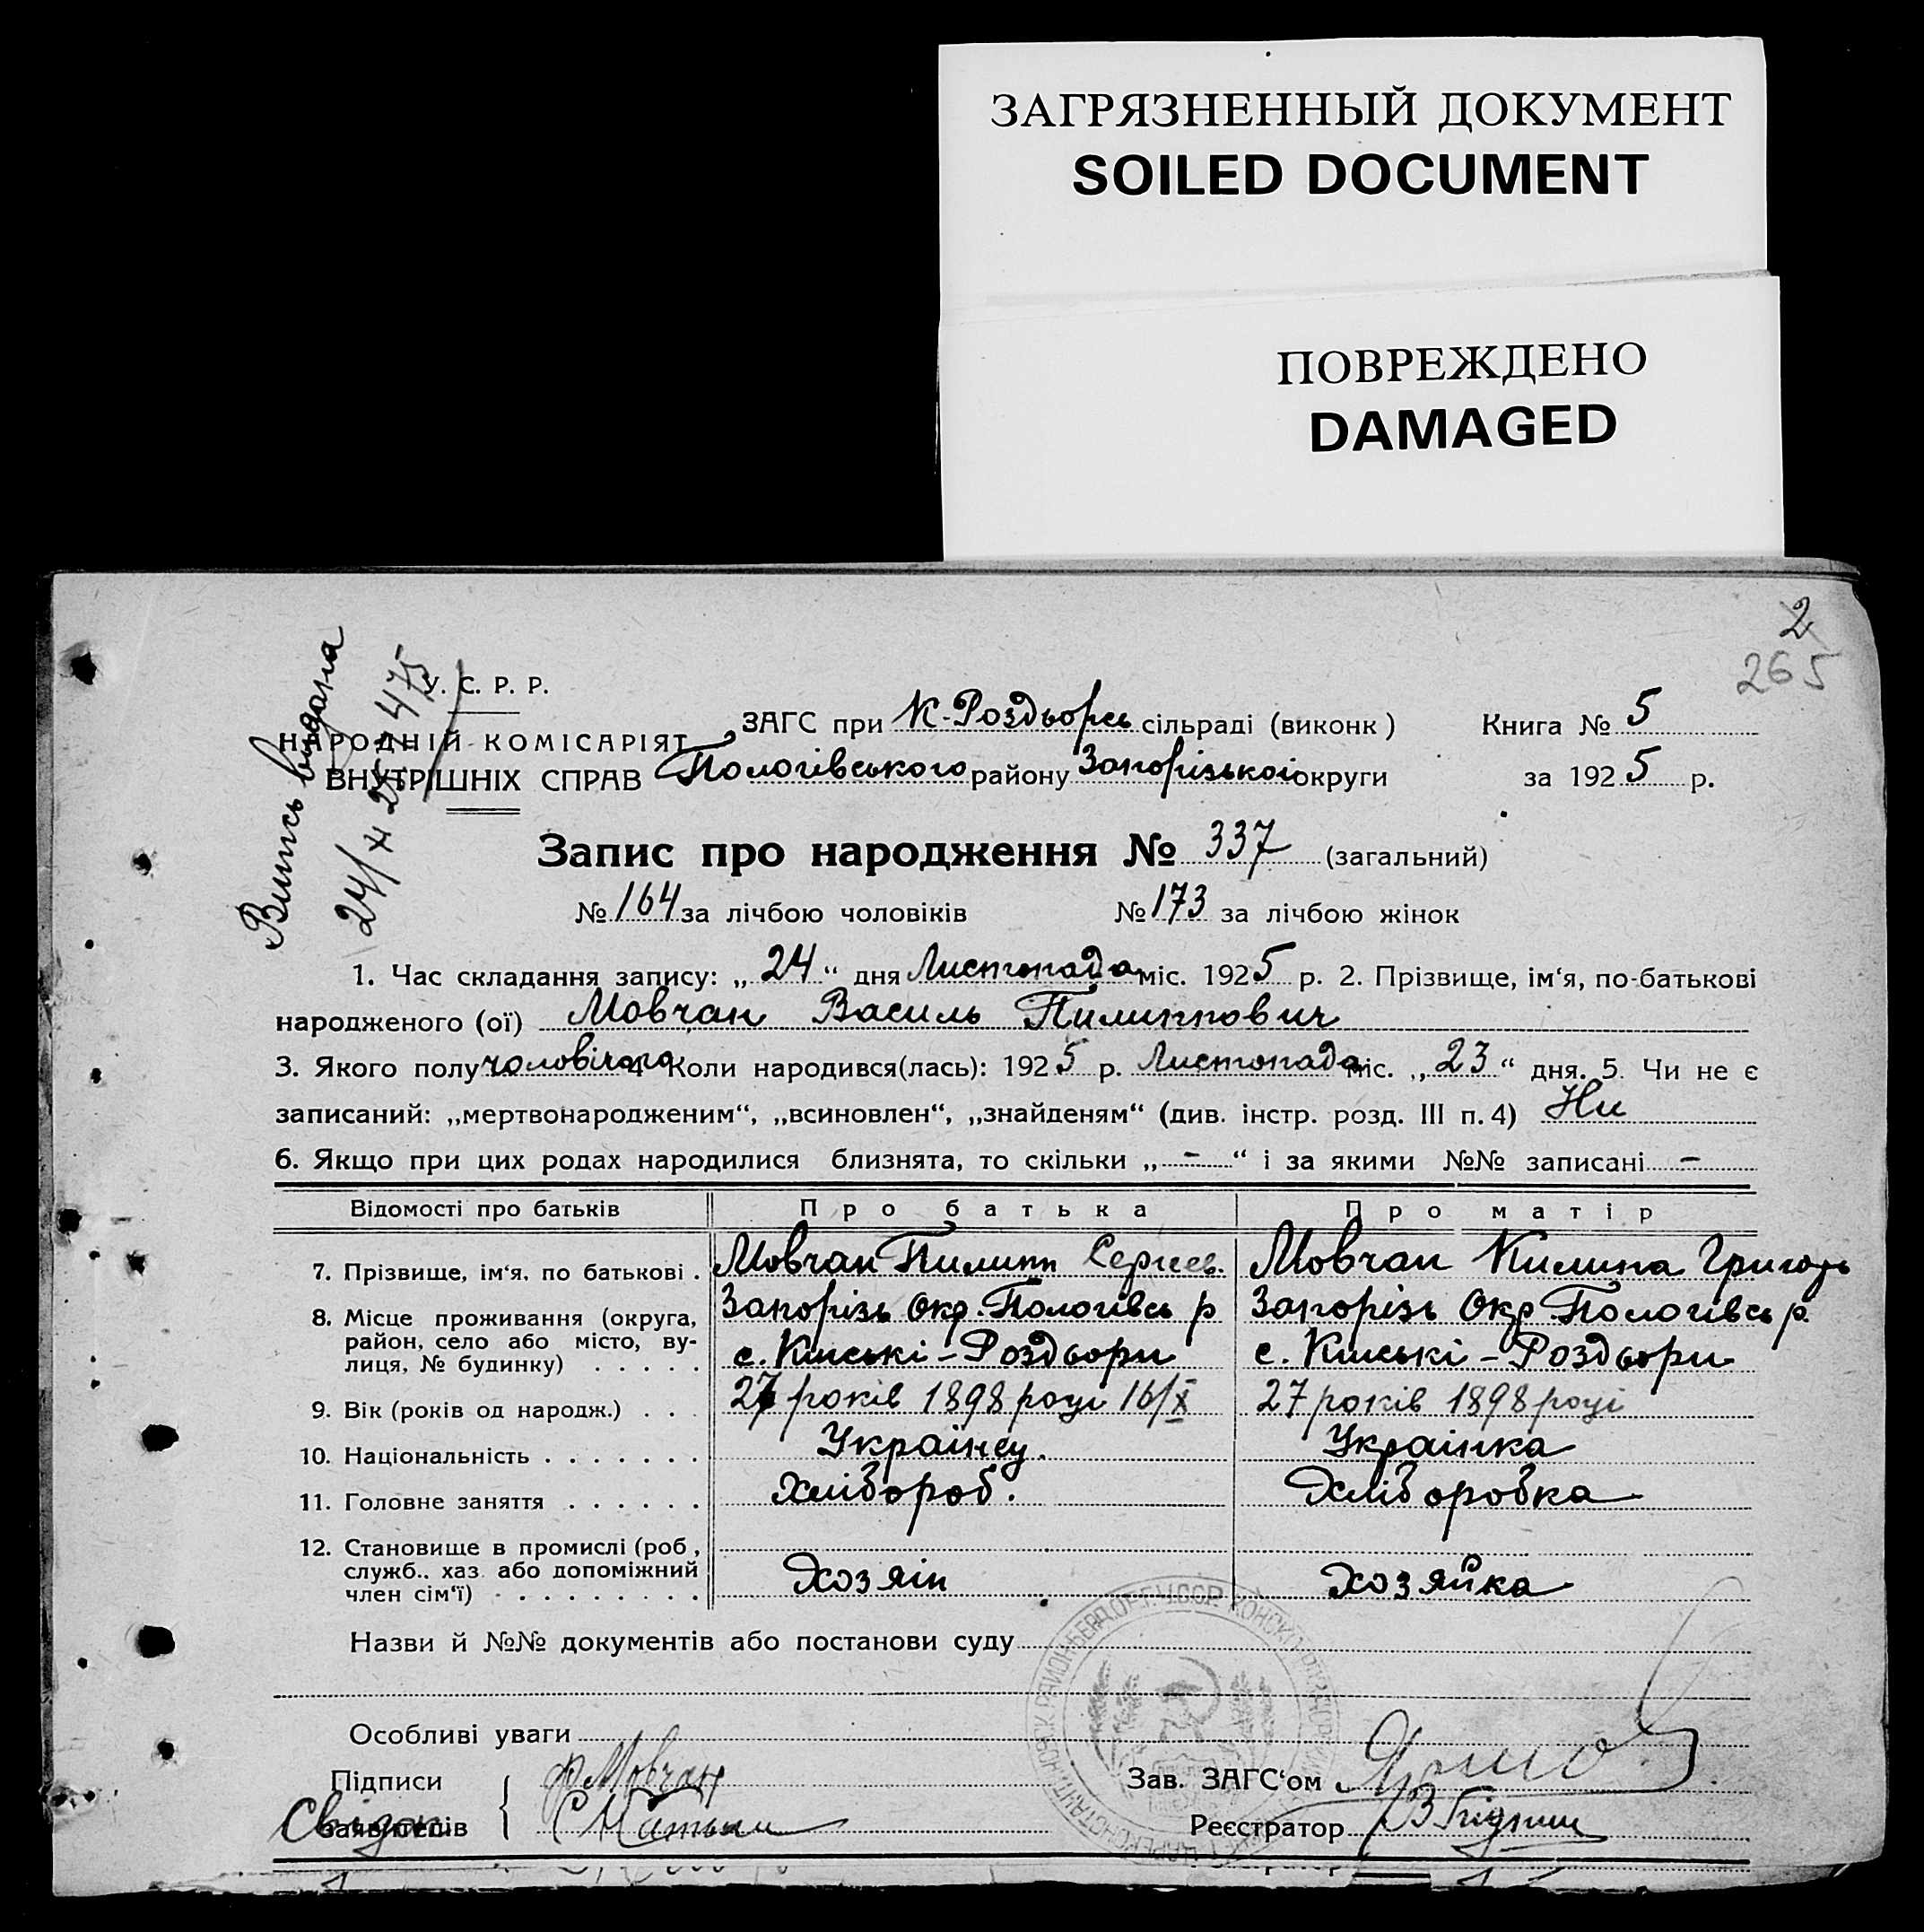 ЗАГРЯЗНЕННЫЙ ДОКУМЕНТ
SOILED DOCUMENT
ПОВРЕЖДЕНО
DAMAGED
2
265
Випись видана
24/XI 25 475
У. С. Р. Р.
НАРОДНІЙ КОМІСАРІЯТ
ВНУТРІШНІХ СПРАВ
ЗАГС при К-Роздьорсь сільраді (виконк) Книга № 5
Пологівського району Запорізькоі округи за 1925 р.
Запис про народження № 337 (загальний)
№ 164 за лічбою чоловіків № 173 за лічбою жінок
1. Час складання запису: „24“ дня Листопада міс. 1925 р. 2. Прізвище, ім‘я, по-батькові
народженого (ої) Мовчан Василь Пилиппович
3. Якого полу чоловічого 4 Коли народився(лась): 1925 р. Листопада міс. „23“ дня. 5. Чи не є
записаний: „мертвонародженим“, „всиновлен“, „знайденям“ (див. інстр. розд. III п. 4) Ни
6. Якщо при цих родах народилися близнята, то скільки „-“ і за якими №№ записані -
Відомості про батьків Про батька Про матір
7. Прізвище, ім‘я, по батькові . Мовчан Пилипп Сергеев. Мовчан Килина Григорь
8. Місце проживання (округа, район, село або місто, вулиця, № будинку) . . . . .
Запорізь Окр. Пологівсь р Запорізь Окр Пологівсь р.
с. Кінські-Роздьори с. Кінські-Роздьори
9. Вік (років од народж.) . . . 27 років 1898 році 16/X 27 років 1898 році
10. Національність . . . . . . . Украінец. Украінка
11. Головне заняття . . . . . . Хлібороб. Хліборобка
12. Становище в промислі (роб, служб.. хаз або допоміжний член сім‘ї) . . . . . . . . .
Хозяін Хозяйка
Назви й №№ документів або постанови суду
Особливі уваги
Підписи заявителів
Свідки
Ф Мовчан
Зав. ЗАГС‘ом
Реєстратор